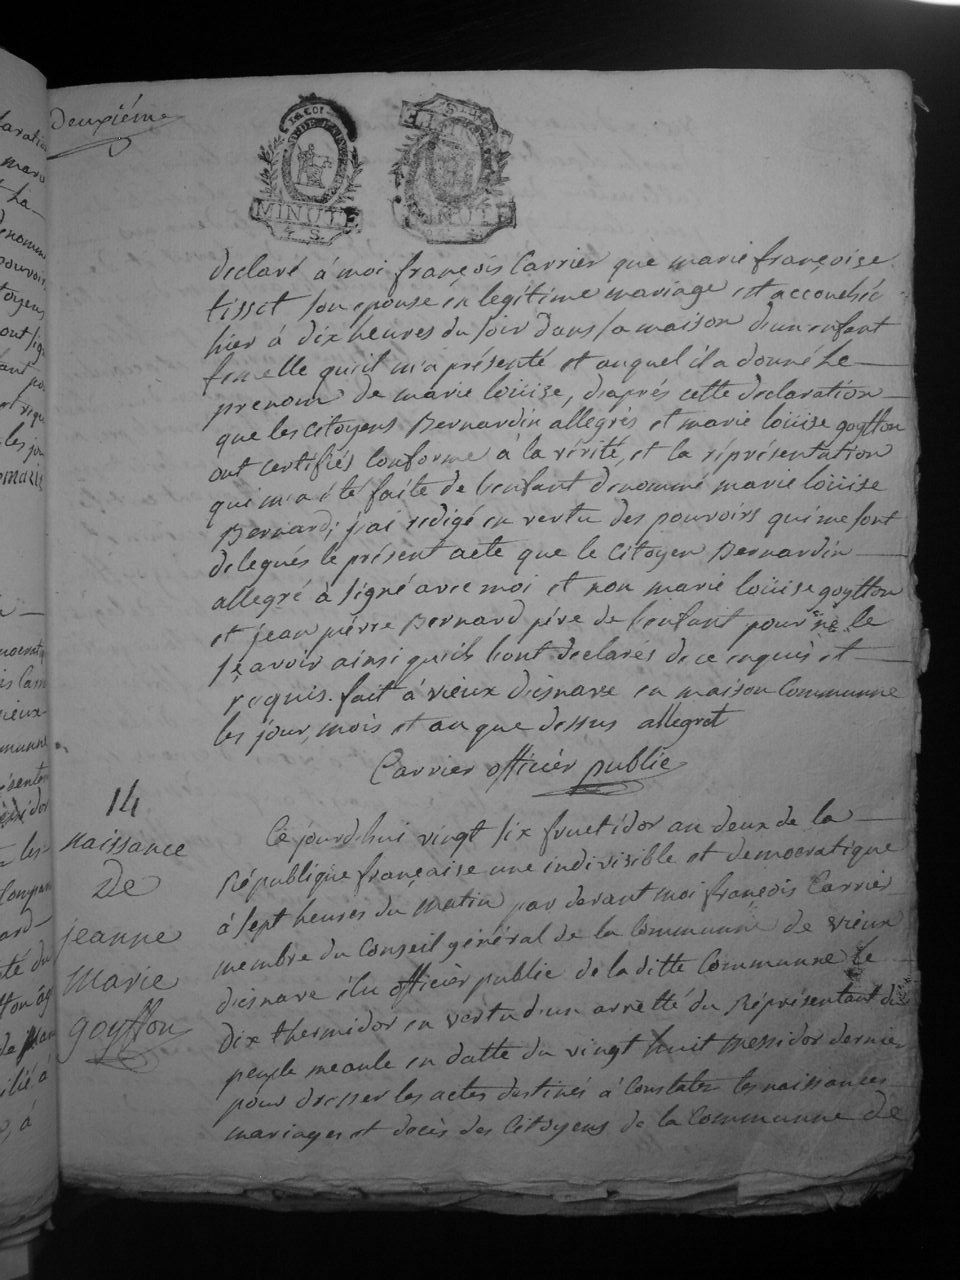 deuxiéme
MINUTE
4 S.
MINUTE
declaré à moi françois Carrier que marie françoise
tissot son epouse en legitime mariage est accouchée
hier à dix heures du soir dans sa maison d'un enfant
femelle qu'il m'a présenté et auquel il a donné le
prenom de marie loüise, d'aprés cette declaration
que les citoyens Bernardin allegrés et marie loüise goytton
ont certifiés conforme à la vérité, et la représentation
qui m'a été faite de l'enfant denommé marie loüise
Bernard; j'ai redigé en vertu des pouvoirs qui me sont
delegués le présent acte que le citoyen Bernardin
allegré à signé avec moi et non marie loüise goytton
et jean piérre Bernard pére de l'enfant pour ne le
sçavoir ainsi qu'ils l'ont declarés de ce enquis et
requis. fait à vieux d'isnave en maison Communne
les jour, mois et an que dessus allegret
Carrier officiér public
14
naissance
De
jeanne
Marie
goytton
Ce jourd'hui vingt six fructidor an deux de la
République française une indivisible et democratique
à sept heures du matin par devant moi françois Carrier
membre du Conseil général de la Communne de vieux
d'isnave élu officiér public de la ditte Communne le
dix thermidor en vertu d'un arretté du Réprésentant du
peuple meaule en datte du vingt huit Messidor dernier
pour dresser les actes destinés à Constater les naissances
mariages et decès des Citoyens de la Communne de